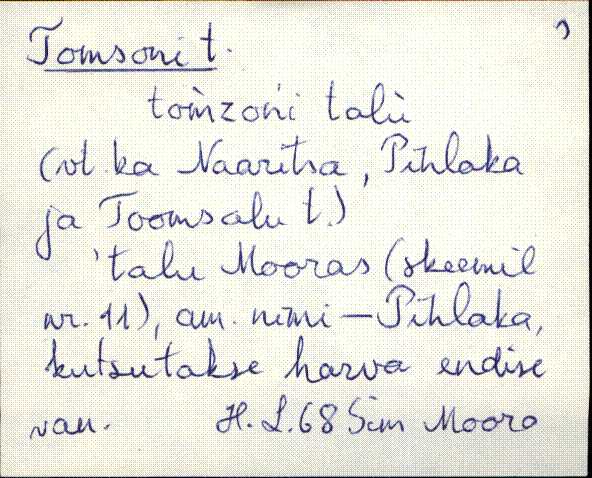 Tomsoni t.
tom̀zońi talù
(vt. ka Naaritsa, Pihlaka
ja Toomsalu t.)
'talu Mooras (skeemil
nr. 11), am. nimi — Pihlaka,
kutsutakse harva endise
van. H. L. 68 Sim Moora